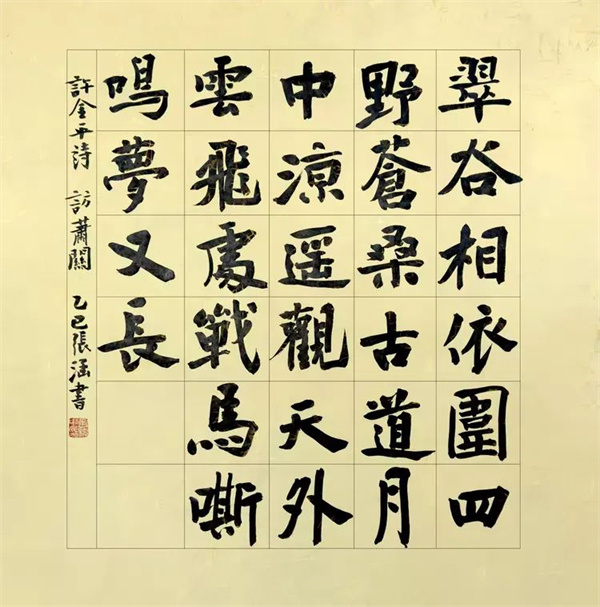 翠谷相依圍四
野蒼桑古道月
中涼遥觀天外
雲飛處戰馬嘶
鳴夢又長
許金平詩 訪蕭關 乙巳張涵書